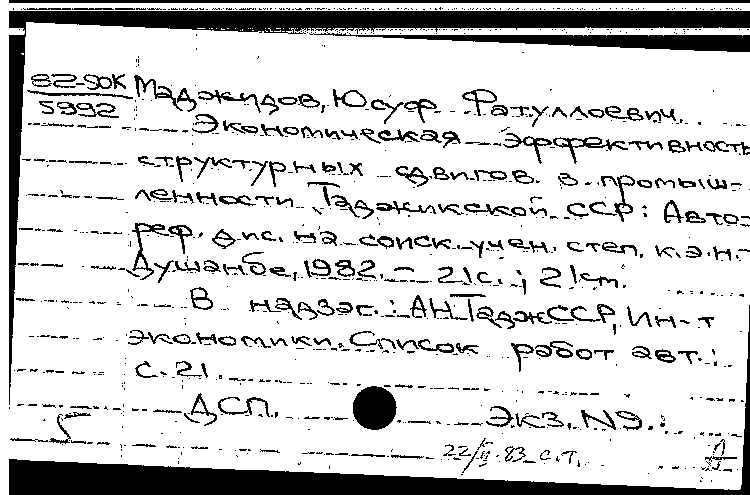 82-50К
5992
Маджидов, Юсуф Фатуллоевич.
Экономическая эффективность
структурных сдвигов в промыш-
ленности Таджикской ССР: Авто-
реф. дис. на соиск. учен. степ. к.э.н.-
Душанбе, 1982. - 21с.; 21см.
В надзаг.: АН ТаджССР, Ин-т
экономики. Список работ авт.:
с. 21.
ДСП. Экз. №9.:
22/II-83 с.т.